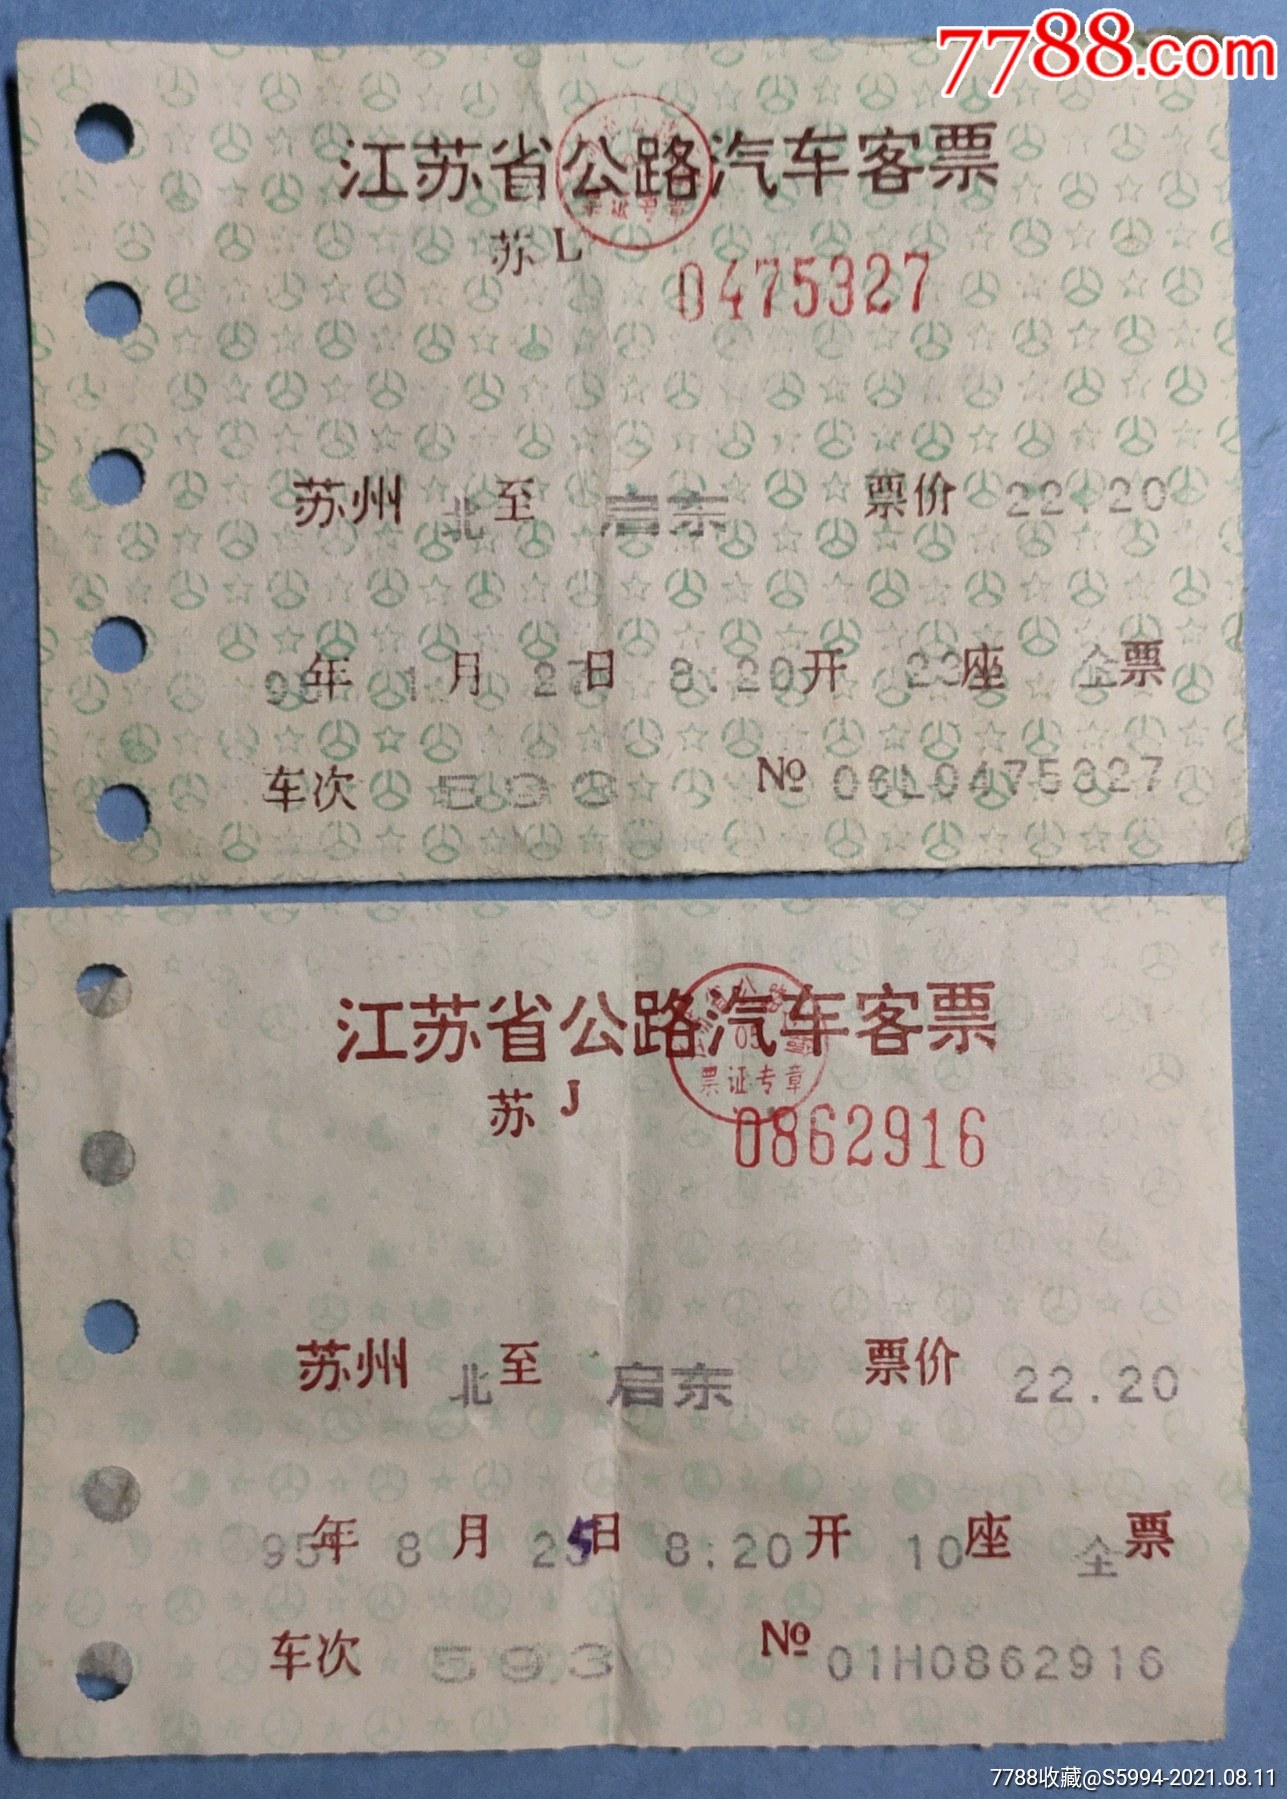 7788.com
江苏省公路汽车客票
票证专章
苏 L
0475327
苏州 北 至 启东 票价 22.20
年 1 月 27 日 8:20 开 23 座 全 票
车次 593 № 06L0475327
江苏省公路汽车客票
05
票证专章
苏 J
0862916
苏州 北 至 启东 票价 22.20
95 年 8 月 25 日 8:20 开 10 座 全 票
车次 593 № 01H0862916
7788收藏@S5994-2021.08.11